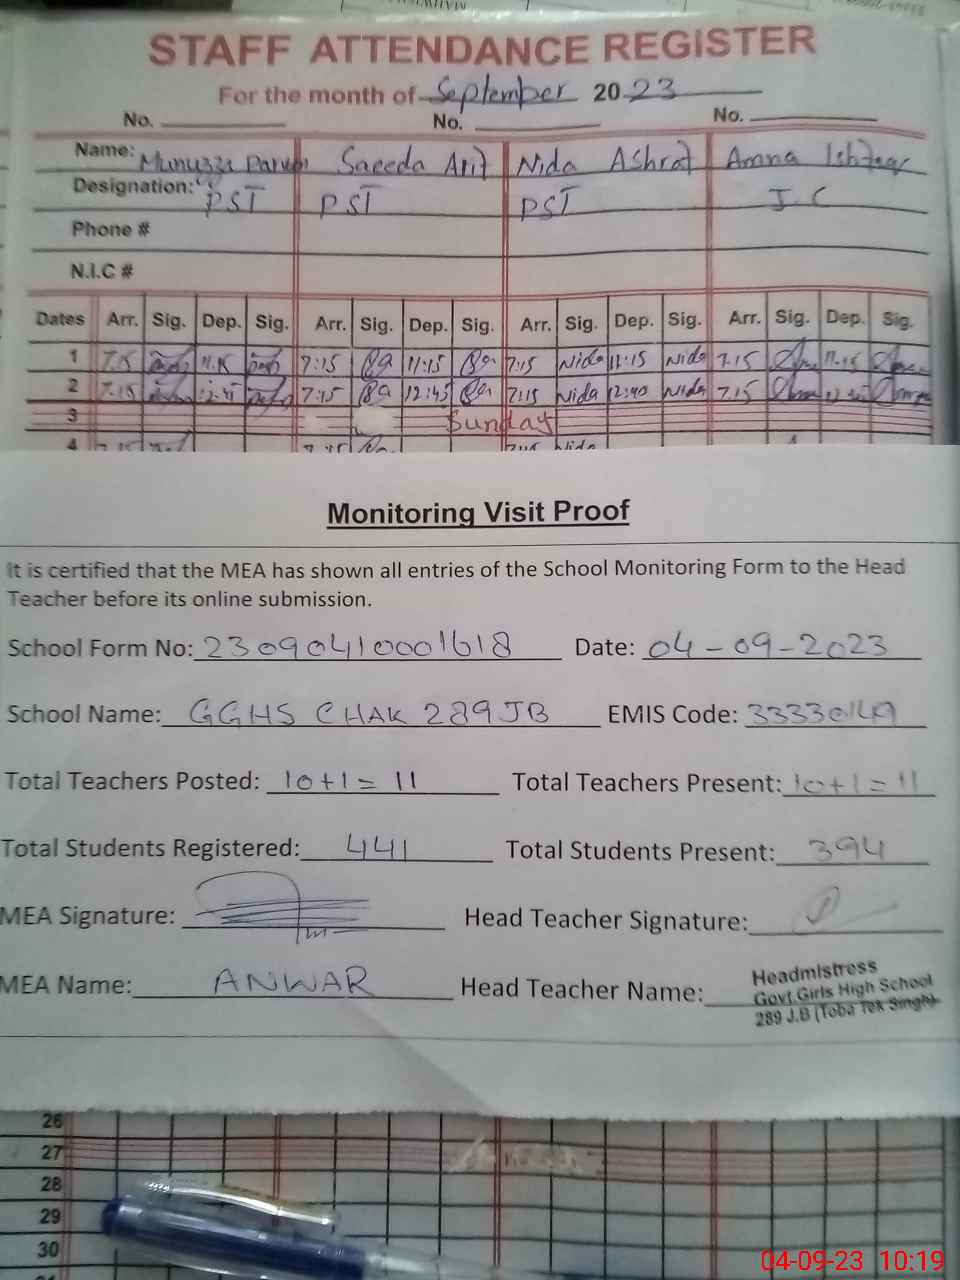 STAFF ATTENDANCE REGISTER
For the month of September 2023
No. No. No.
Name: Saeeda Arif Nida Ashraf Amna
Designation: PST PST PST
Phone #
N.I.C #
Dates Arr. Sig. Dep. Sig. Arr. Sig. Dep. Sig. Arr. Sig. Dep. Sig. Arr. Sig. Dep. Sig.
1 7.15 11.15 7:15 11:15 7:15 Nida 11:15 Nida 7.15 11.15
2 7.15 7:15 12:45 7:15 Nida 12:40 Nida 7.15
3 Sunday
4 Nida
Monitoring Visit Proof
It is certified that the MEA has shown all entries of the School Monitoring Form to the Head
Teacher before its online submission.
School Form No: 23090410001618 Date: 04-09-2023
School Name: GGHS CHAK 289 JB EMIS Code: 33330149
Total Teachers Posted: 10+1=11 Total Teachers Present: 10+1=11
Total Students Registered: 441 Total Students Present: 394
MEA Signature: Head Teacher Signature:
MEA Name: ANWAR Head Teacher Name:
Headmistress
Govt.Girls High School
289 J.B (Toba Tek Singh)
26
27
28
29
30
04-09-23 10:19